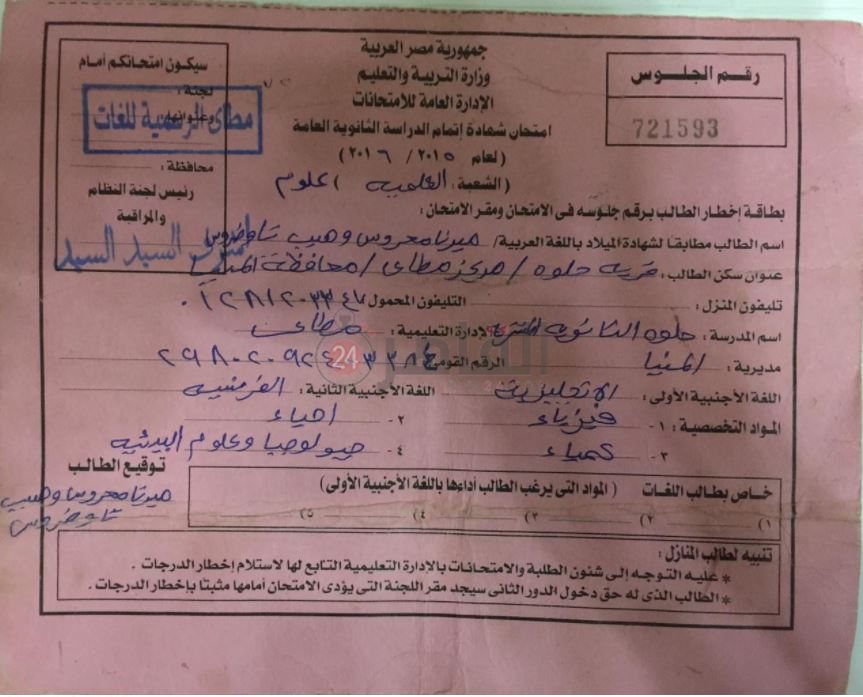 جمهورية مصر العربية
وزارة التربية والتعليم
الإدارة العامة للامتحانات
امتحان شهادة إتمام الدراسة الثانوية العامة
( لعام ٢٠١٥ / ٢٠١٦ )
الشعبة : ( العلمية ) علوم
رقم الجلوس
721593
سيكون امتحانكم أمام
لجنة :
وعنوانها
مطاى الرسمية للغات
محافظة :
رئيس لجنة النظام
والمراقبة
السيد السيد
بطاقة إخطار الطالب برقم جلوسه فى الامتحان ومقر الامتحان :
اسم الطالب مطابقا لشهادة الميلاد باللغة العربية : ميرنا محروس وهيب تاوضروس
عنوان سكن الطالب : قرية حلوه / مركز مطاى / محافظة المنيا
تليفون المنزل : التليفون المحمول
اسم المدرسة : حلوه الثانوية الإدارة التعليمية : مطاى
مديرية : المنيا الرقم القومى
اللغة الأجنبية الأولى : الإنجليزية اللغة الأجنبية الثانية : الفرنسية
المواد التخصصية : ١- فيزياء ٢- احياء
٣- كمياء ٤- جيولوجيا وعلوم البيئية
توقيع الطالب
ميرنا محروس وهيب
تاوضروس
خاص بطالب اللغات ( المواد التى يرغب الطالب أداءها باللغة الأجنبية الأولى )
١) ٢) ٣) ٤) ٥)
تنبيه لطالب المنازل :
* عليه التوجه إلى شئون الطلبة والامتحانات بالإدارة التعليمية التابع لها لاستلام إخطار الدرجات .
* الطالب الذى له حق دخول الدور الثانى سيجد مقر اللجنة التى يؤدى الامتحان أمامها مثبتا بإخطار الدرجات .
24